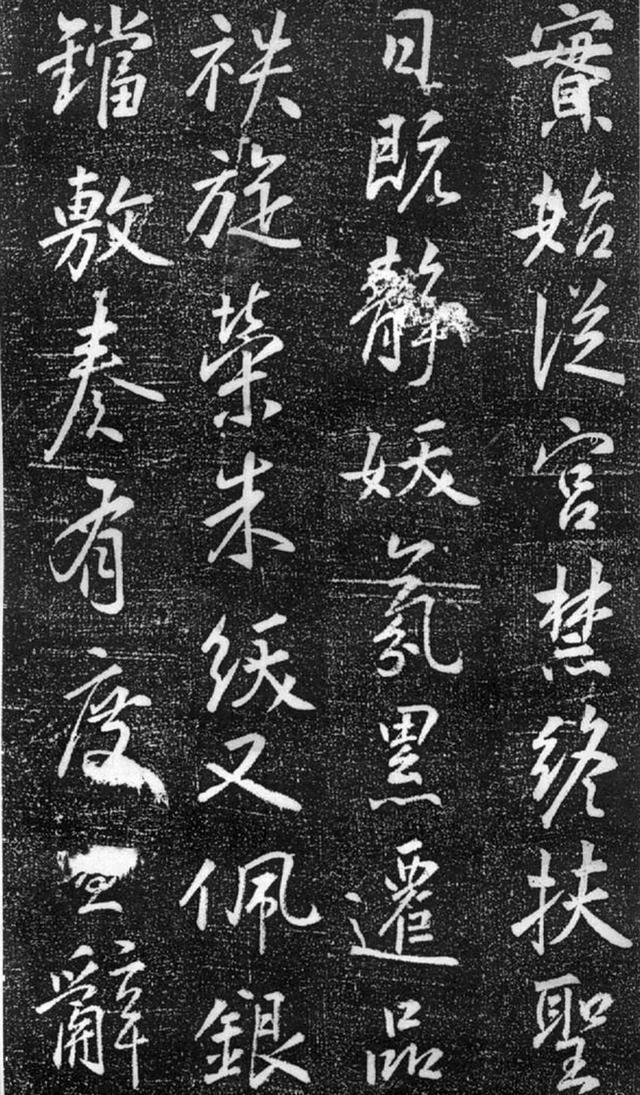 實始從宮禁終扶聖
日既靜妖氛累遷品
袟旋榮朱紱又佩銀
鐺敷奏有度辭